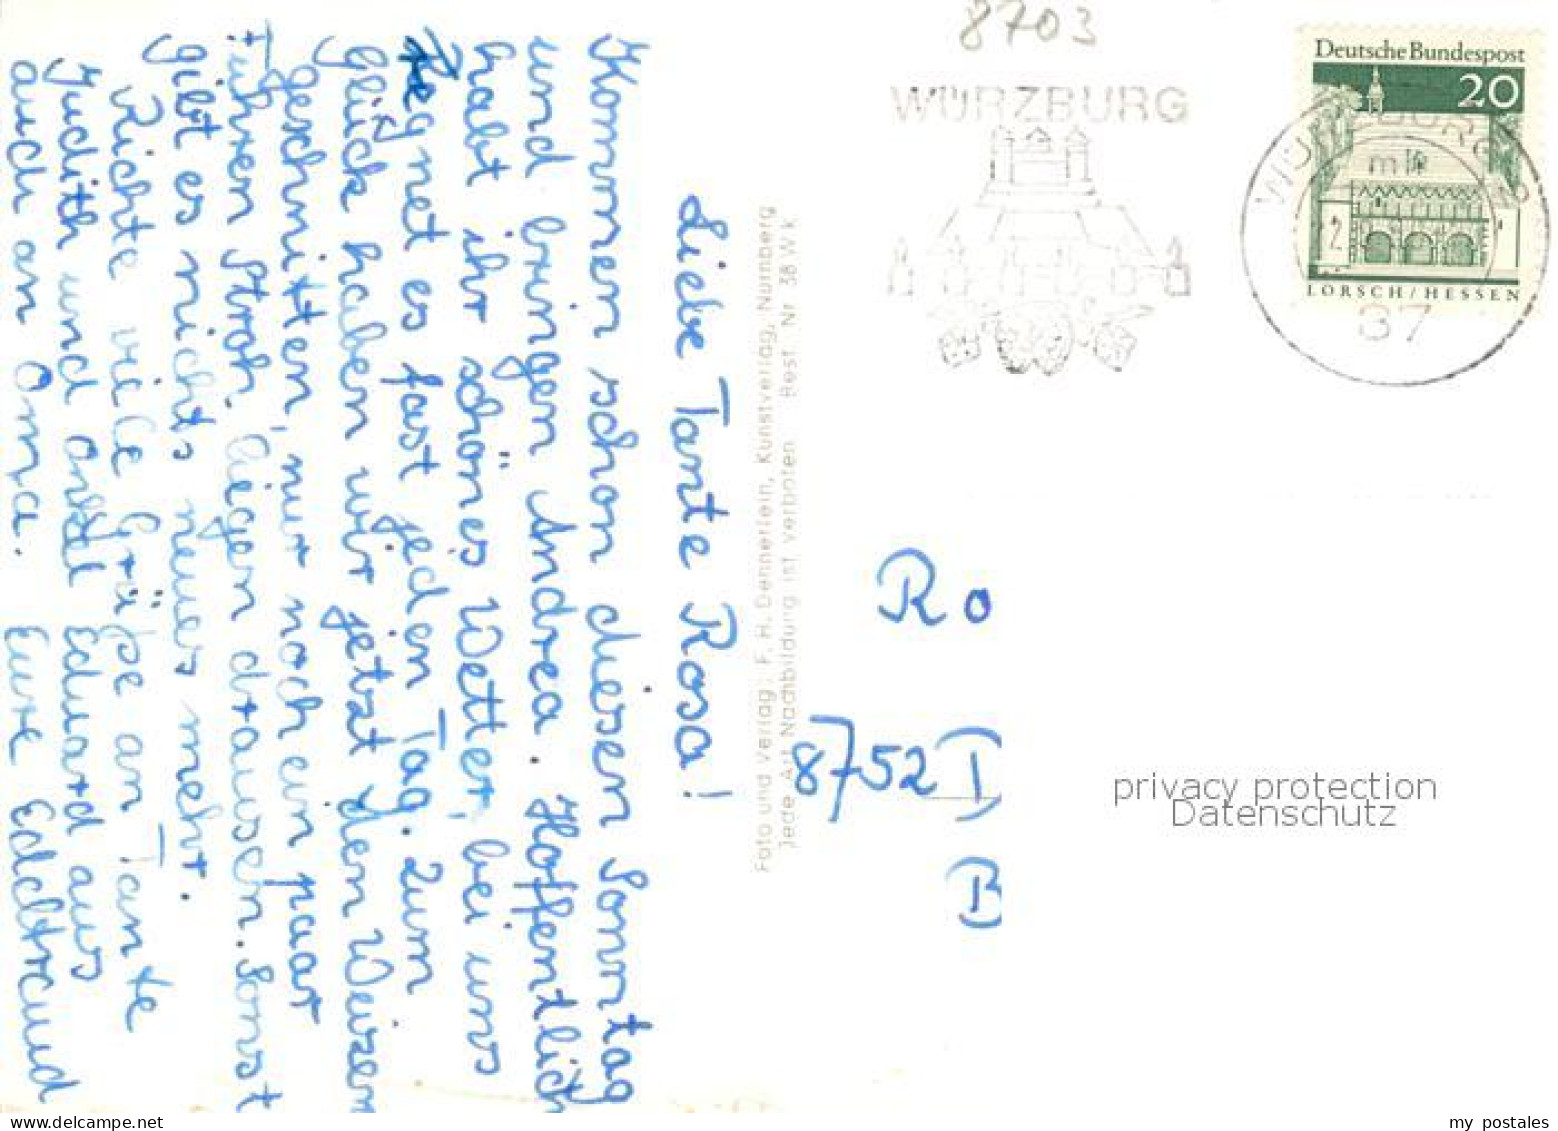 Liebe Tante Rosa!
Kommen schon diesen Sonntag
und bringen Andrea. Hoffentlich
habt ihr schönes Wetter, bei uns
Regnet es fast jeden Tag. Zum
glück haben wir jetzt den Weizen
geschnitten, nur noch ein paar
Fuhren Stroh liegen draussen. Sonst
gibt es nichts neues mehr.
Richte viele Grüße an Tante
Judith und onkel Eduard aus
auch an Oma. Eure Edeltraud
Foto und Verlag: F. H. Dennerlein, Kunstverlag, Nürnberg
Jede Art Nachbildung ist verboten Best. Nr. 38 Wk
8703
WÜRZBURG
Deutsche Bundespost
20
LORSCH/HESSEN
WÜRZBURG
mk
87
Ro
8752
B
privacy protection
Datenschutz
www.delcampe.net
my_postales